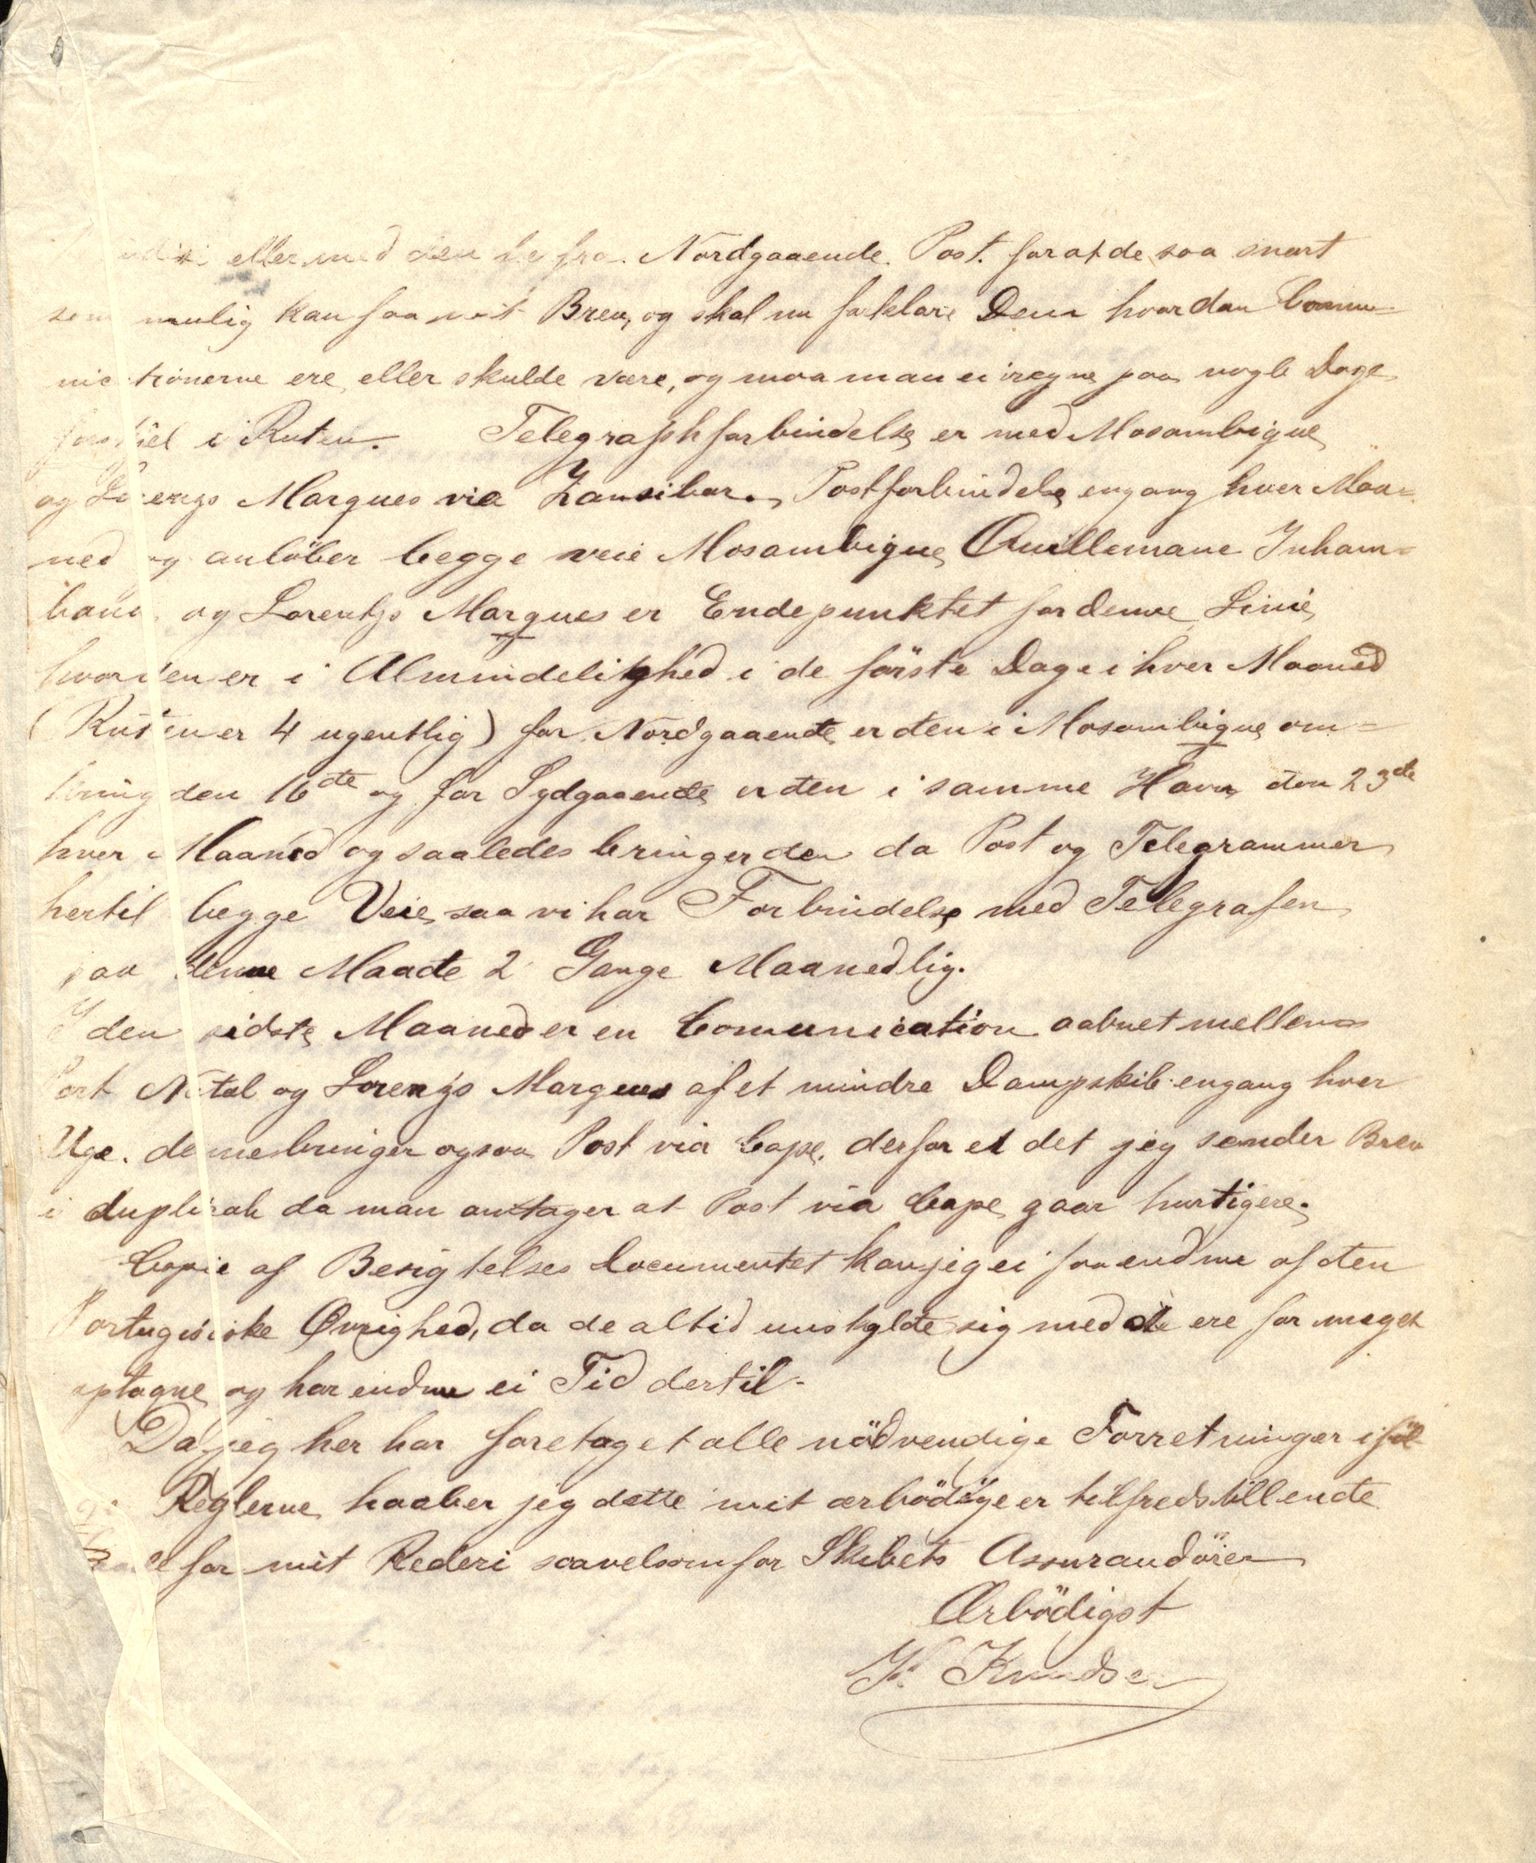 eller med den herfra Nordgaaende Post. for at de saa snart
som mulig kan faa mit Brev, og skal nu forklare Dem hvordan Commu-
nicationerne ere eller skulde være, og maa man ei regne paa nogle Dage
forskjel i Ruten. Telegraphforbindelse er med Mosambique
og Lorenzo Marques via Zansibar. Postforbindelse engang hver Maa=
ned og anløber begge veie Mosambique Quillemane Inham=
bane og Lorentzo Marques er Endepunktet for denne Linie
hvor den er i Almindelighed i de förste Dage i hver Maaned
(Ruten er 4 ugentlig) for Nordgaaende er den i Mosambique om=
kring den 16de og for Sydgaaende er den i samme Havn den 23de
hver Maaned og saaledes bringer den da Post og Telegrammer
hertil begge Veie saa vi har Forbindelse med Telegrafen
paa denne Maade 2 Gange Maanedlig.
I den sidste Maaned er en Comunication aabnet mellem
Port Natal og Lorenzo Marques af et mindre Dampskib engang hver
Uge. denne bringer ogsaa Post via Cape. derfor er det jeg sender Brev
i duplicat da man antager at Post via Cape gaar hurtigere.
Copie af Besigtelses Documentet kan jeg ei faa endnu af den
Portugisiske Øvrighed, da de altid unskylde sig med de ere for meget
optagne og har endnu ei Tid dertil.
Da jeg her har foretaget alle nödvendige Forretninger iföl
ge Reglerne haaber jeg dette mit ærbödige er tilfredstillende
for mit Rederi saavelsom for Skibets Assurandörer
Ærbödigst
Knudsen